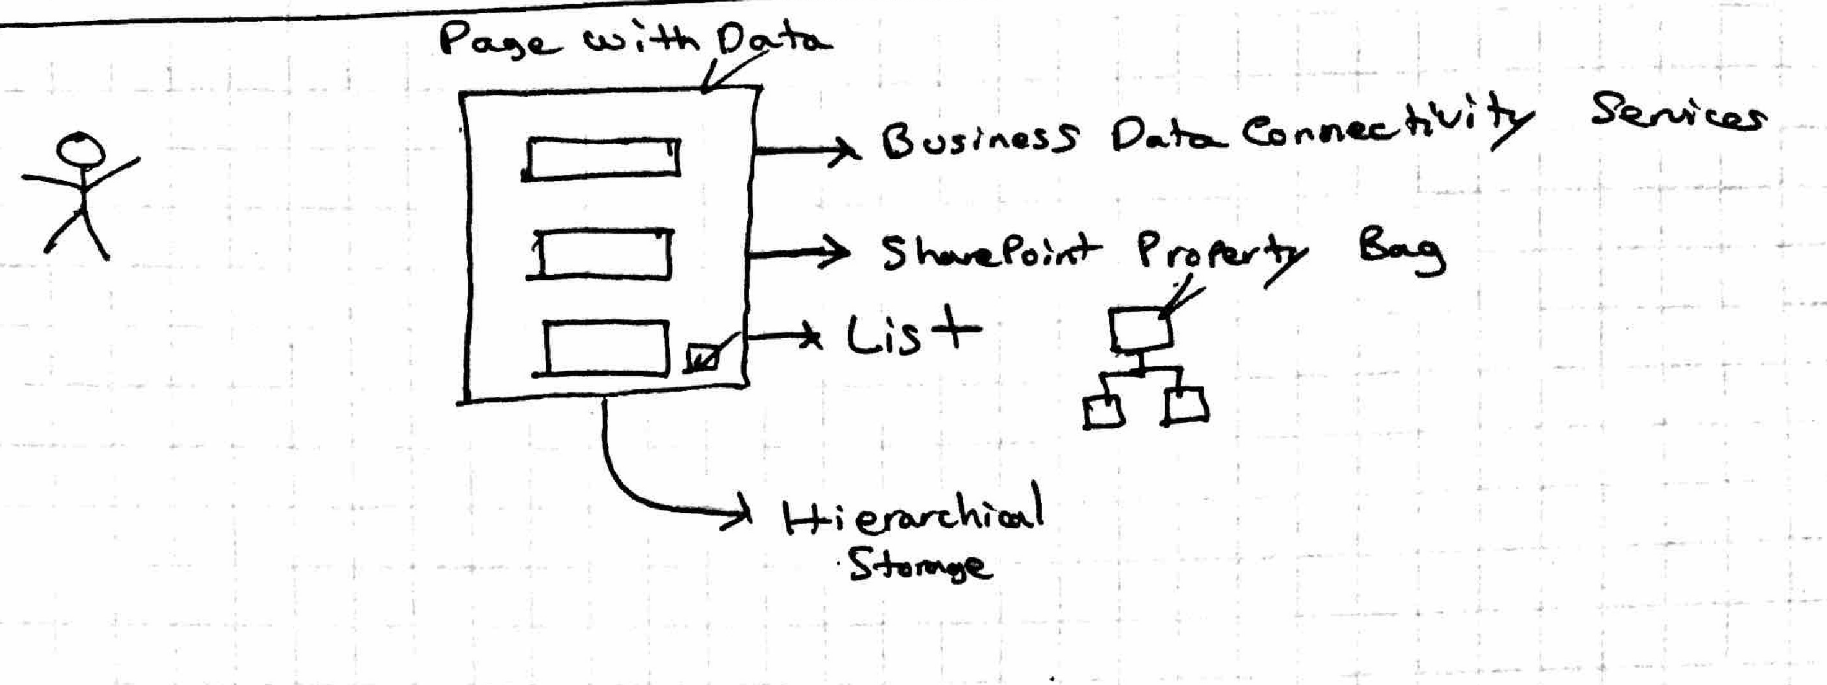 Page with Data
Business Data Connectivity Services
SharePoint Property Bag
List
Hierarchical
Storage